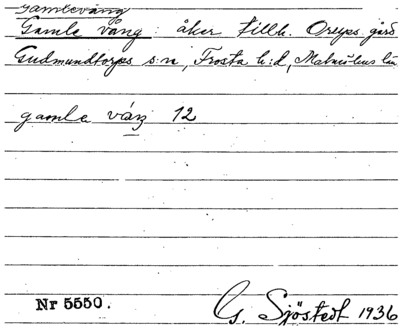 Gamlevång
Gamle vång: åker tillh. Oreyes gård
Gudmundtorps s:n, Frosta h:d, Malmöhus län
gamle våŋ 12
Nr 5550.
G. Sjöstedt 1936